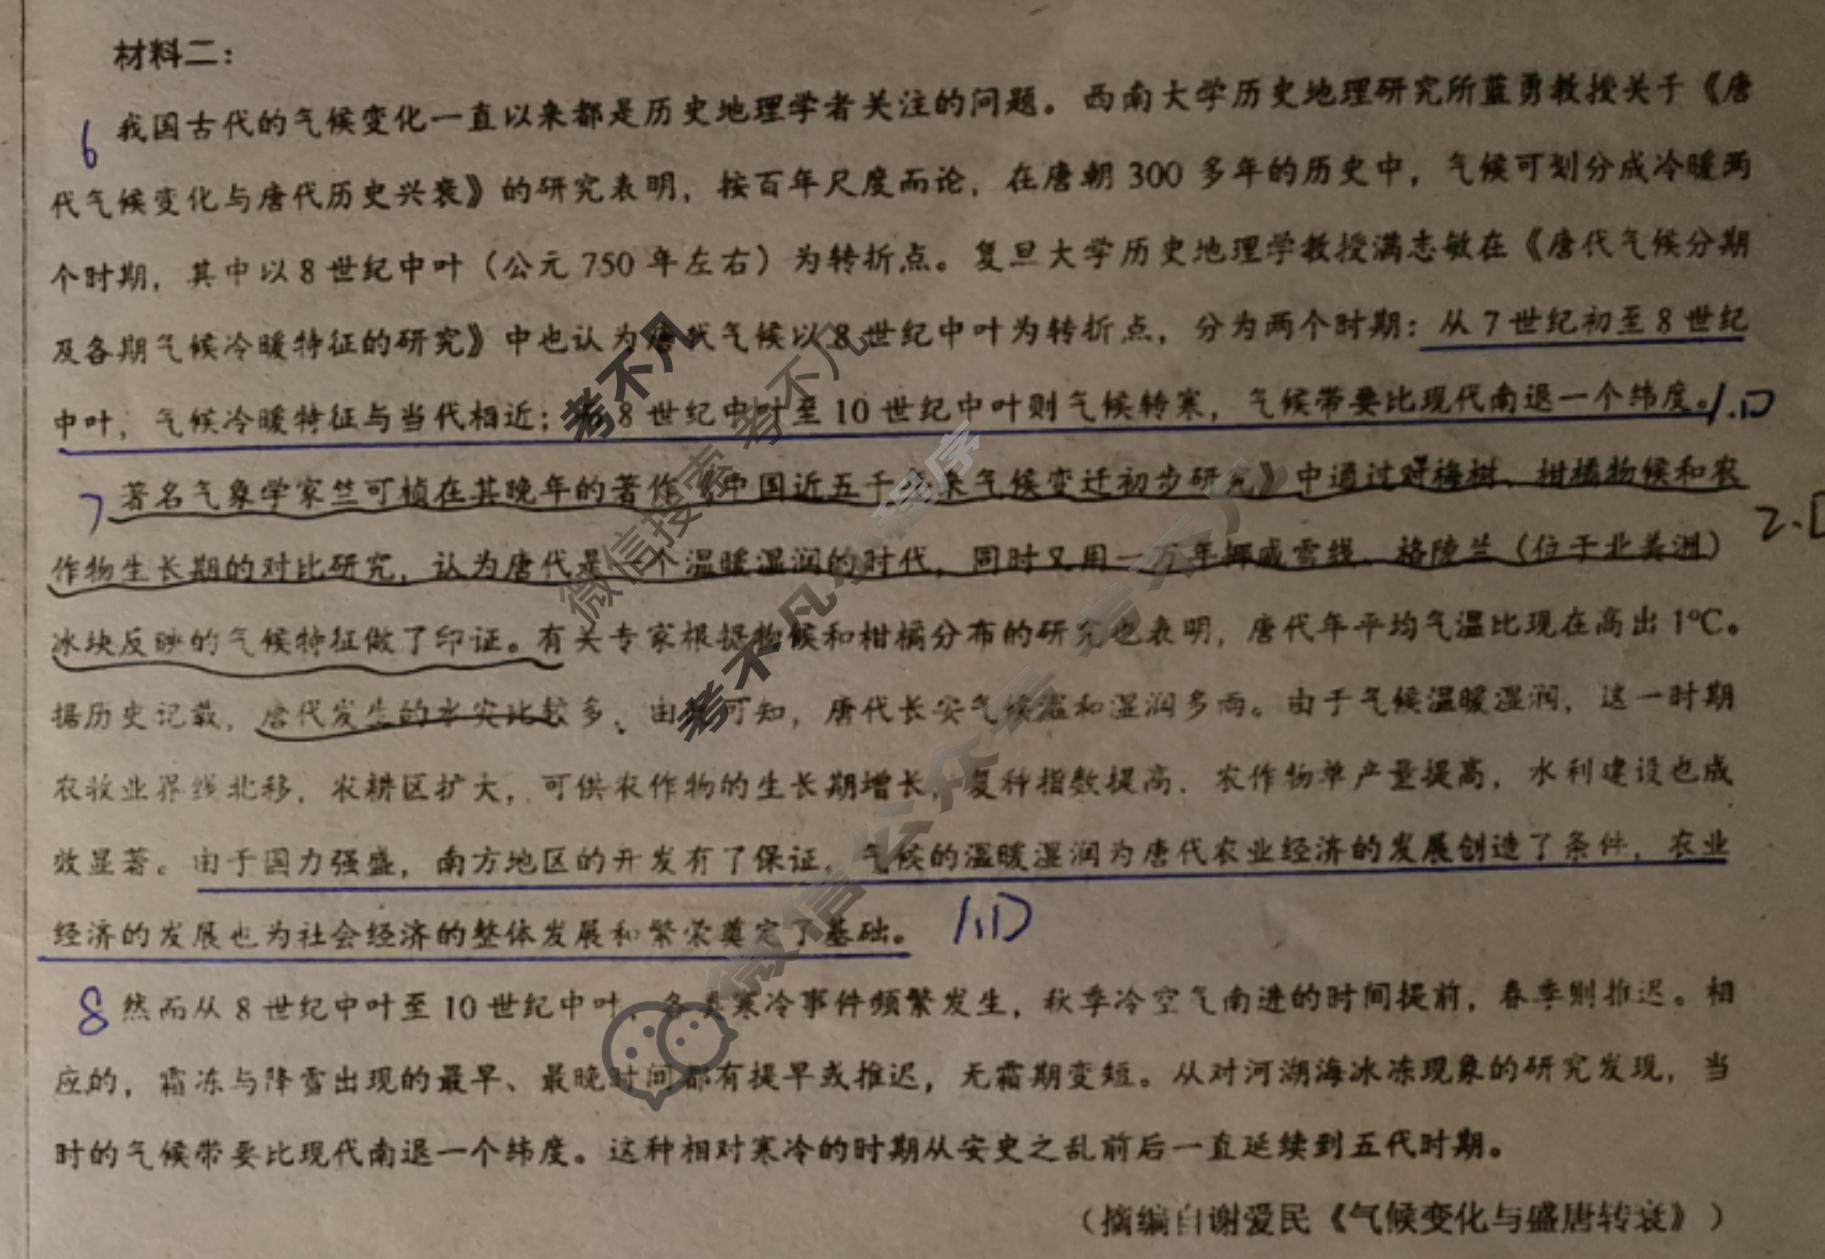 材料二：
6 我国古代的气候变化一直以来都是历史地理学者关注的问题。西南大学历史地理研究所蓝勇教授关于《唐
代气候变化与唐代历史兴衰》的研究表明，按百年尺度而论，在唐朝300多年的历史中，气候可划分成冷暖两
个时期，其中以8世纪中叶（公元750年左右）为转折点。复旦大学历史地理学教授满志敏在《唐代气候分期
及各期气候冷暖特征的研究》中也认为唐代气候以8世纪中叶为转折点，分为两个时期：从7世纪初至8世纪
中叶，气候冷暖特征与当代相近；8世纪中叶至10世纪中叶则气候转寒，气候带要比现代南退一个纬度。1.D
7 著名气象学家竺可桢在其晚年的著作《中国近五千年来气候变迁初步研究》中通过对梅树、柑橘物候和农
作物生长期的对比研究，认为唐代是一个温暖湿润的时代，同时又用一万年挪威雪线、格陵兰（位于北美洲） 2.D
冰块反映的气候特征做了印证。有关专家根据物候和柑橘分布的研究也表明，唐代年平均气温比现在高出1℃。
据历史记载，唐代发生的水灾比较多、由此可知，唐代长安气候温和湿润多雨。由于气候温暖湿润，这一时期
农牧业界线北移，农耕区扩大，可供农作物的生长期增长，复种指数提高，农作物单产量提高，水利建设也成
效显著。由于国力强盛，南方地区的开发有了保证，气候的温暖湿润为唐代农业经济的发展创造了条件，农业
经济的发展也为社会经济的整体发展和繁荣奠定了基础。 1.D
8 然而从8世纪中叶至10世纪中叶，各类寒冷事件频繁发生，秋季冷空气南进的时间提前，春季则推迟。相
应的，霜冻与降雪出现的最早、最晚时间都有提早或推迟，无霜期变短。从对河湖海冰冻现象的研究发现，当
时的气候带要比现代南退一个纬度。这种相对寒冷的时期从安史之乱前后一直延续到五代时期。
（摘编自谢爱民《气候变化与盛唐转衰》）
考不凡
微信搜索 考不凡
考不凡小程序
微信公众号 考不凡